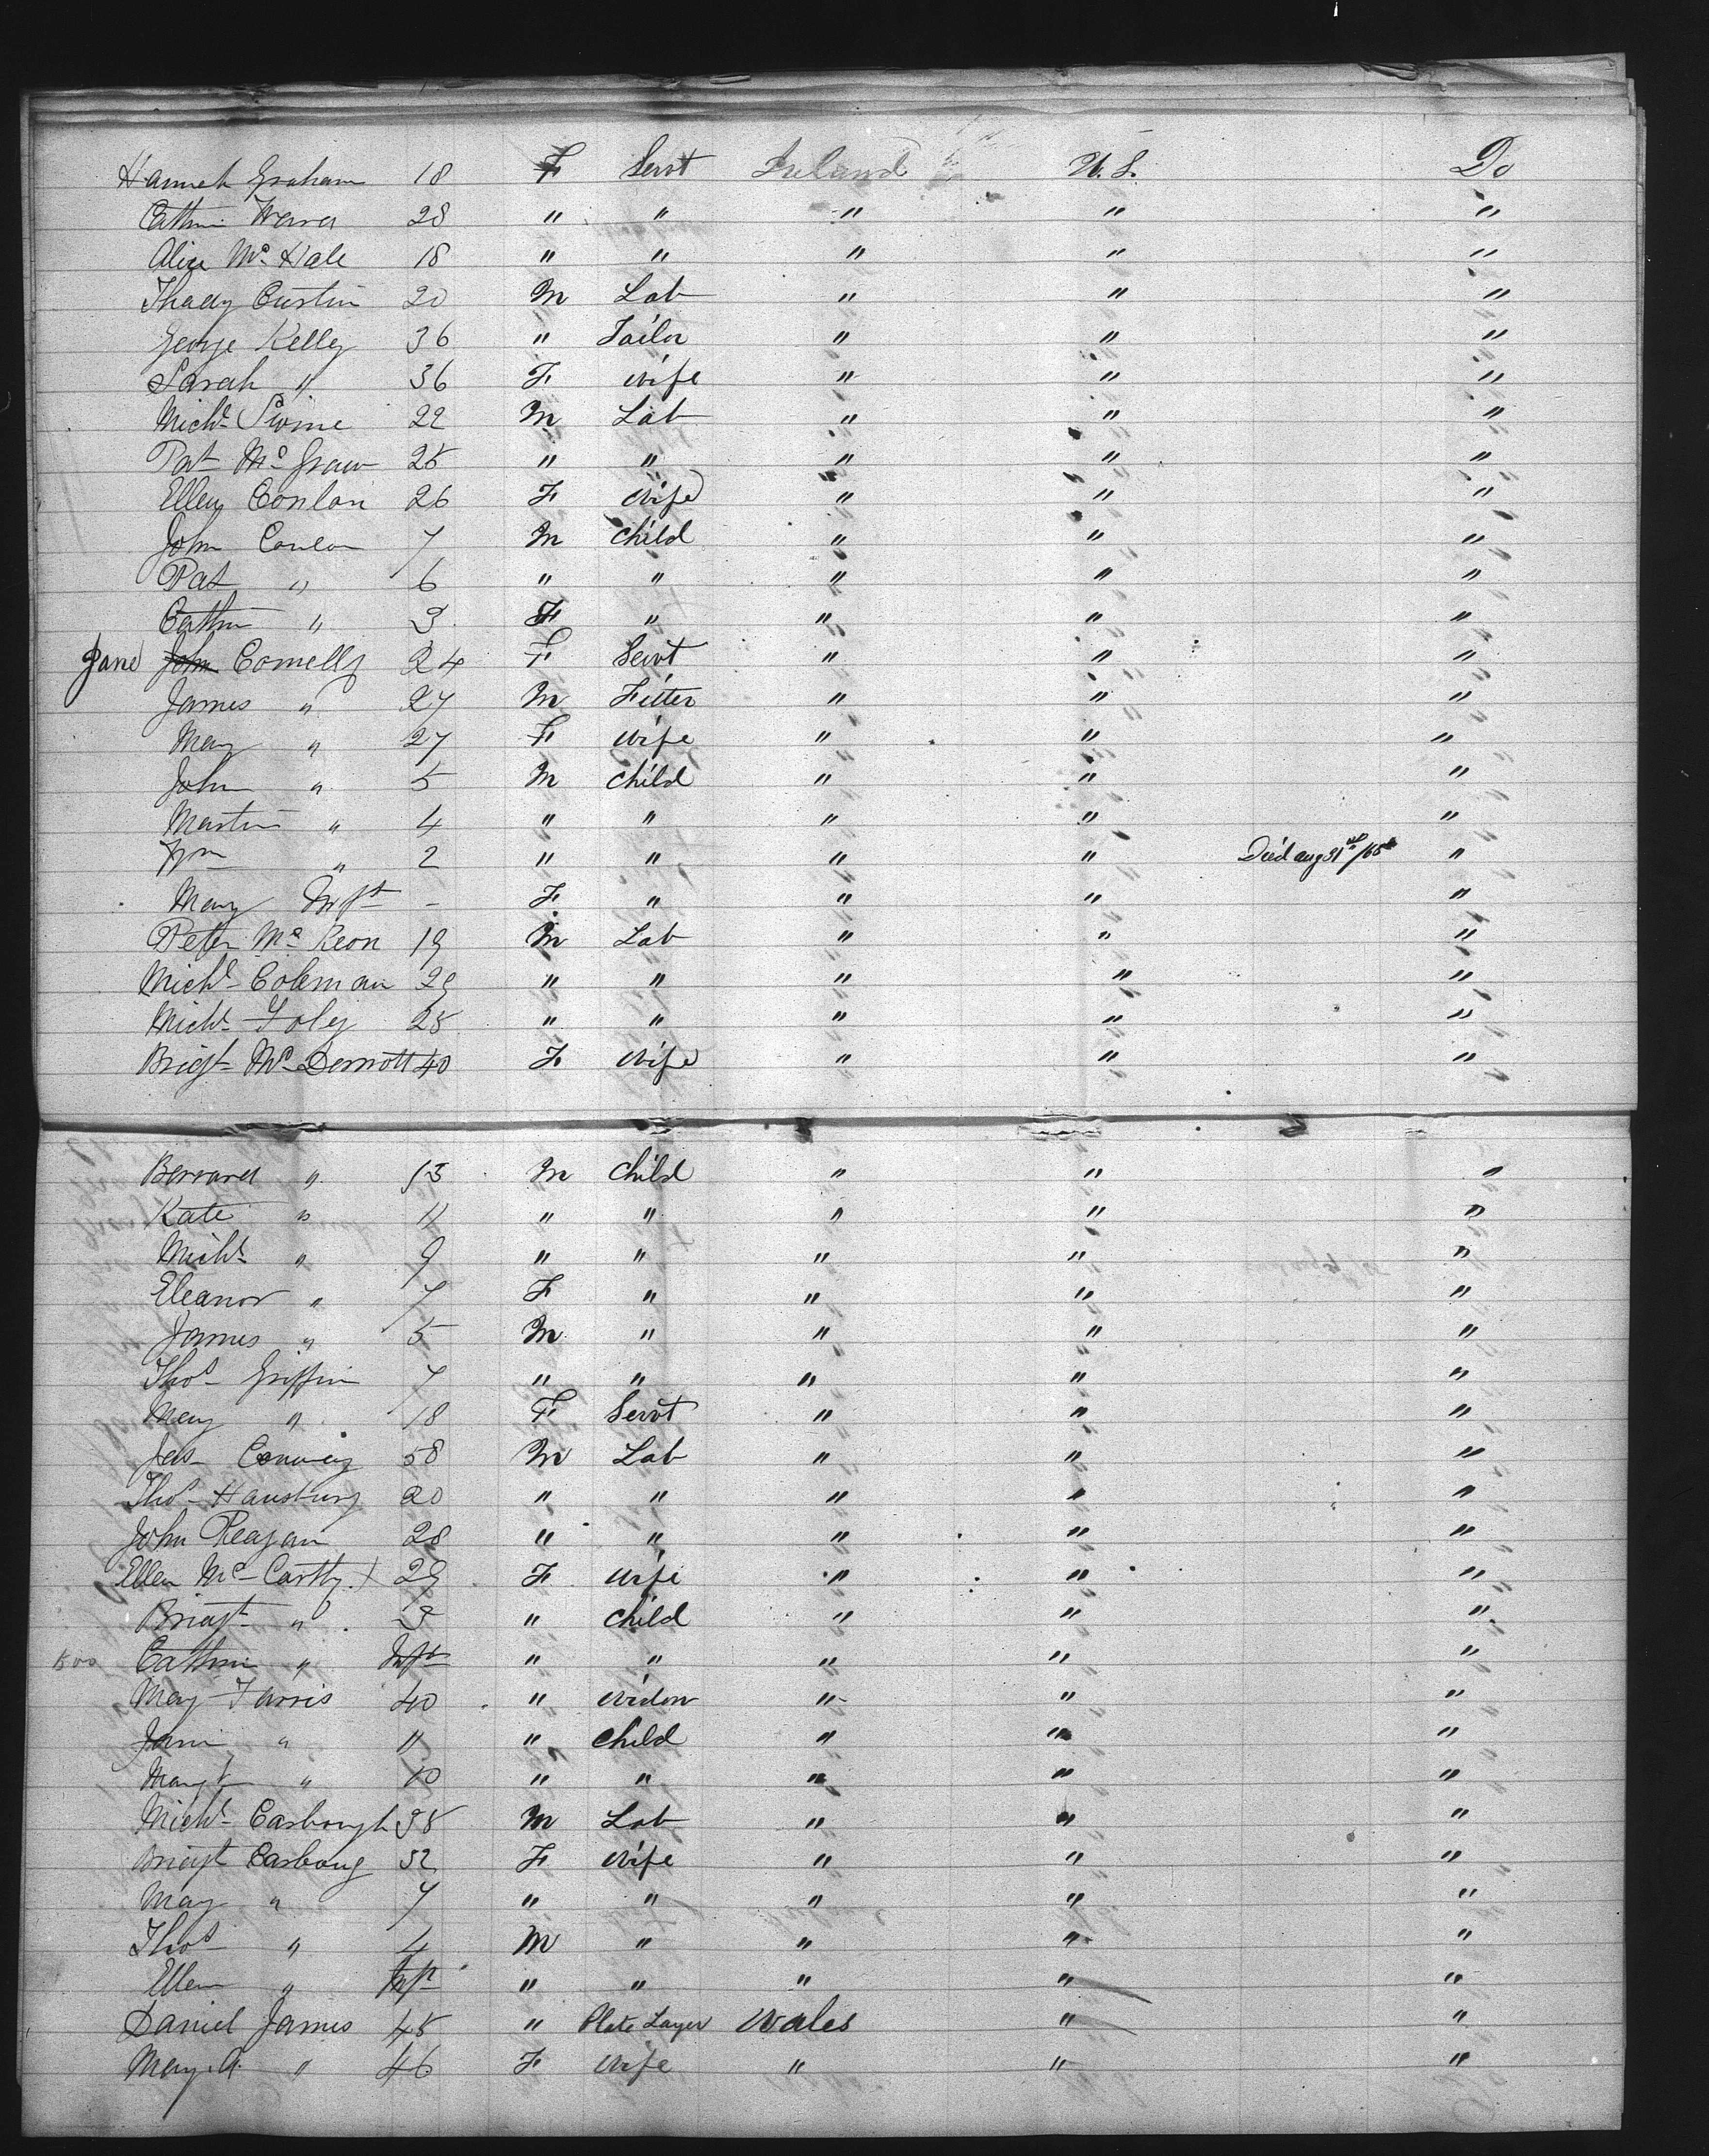 Hannah Graham 18 F Servt Ireland U.S. Do
Cathrin 28 " " " " "
Alice Mc Hale 18 " " " " "
Thady Custin 20 M Lab " " "
George Kelly 36 " Tailor " " "
Sarah " 36 F wife " " "
Michl 22 M Lab " " "
Pat Mc Graw 25 " " " " "
Ellen Conlon 26 F wife " " "
John Conlon 7 M child " " "
Pat " 6 " " " " "
Cathrin " 3 F " " " "
Jane John Connelly 24 F Servt " " "
James " 27 M Fitter " " "
Mary " 27 F wife " " "
John " 5 M child " " "
Martin " 4 " " " " "
Wm " 2 " " " " Died aug 31st/65 "
Mary Inft - F " " " "
Peter Mc Keon 19 M Lab " " "
Michl Coleman 29 " " " " "
Michl Foley 25 " " " " "
Bridgt Mc Dermott 40 F wife " " "
Bernard " 13 M child " " "
Kate " 11 " " " " "
Michl " 9 " " " " "
Eleanor " 7 F " " " "
James " 5 M " " " "
Thos Griffin 7 " " " " "
Mary " 18 F Servt " " "
Jas Conway 58 M Lab " " "
Thos 20 " " " " "
John Reagan 28 " " " " "
Ellen Mc Carthy 29 F wife " " "
Bridgt " 3 " child " " "
Cathrin " Inft " " " " "
Mary Farris 40 " widow " " "
Jane " 11 " child " " "
Margt " 10 " " " " "
Michl Casbough 38 M Lab " " "
Bridgt Casboug 32 F wife " " "
Mary " 7 " " " " "
Thos " 4 M " " " "
Ellen " Inft " " " " "
Daniel James 45 " Plate Layer Wales " "
Mary A. " 46 F wife " " "